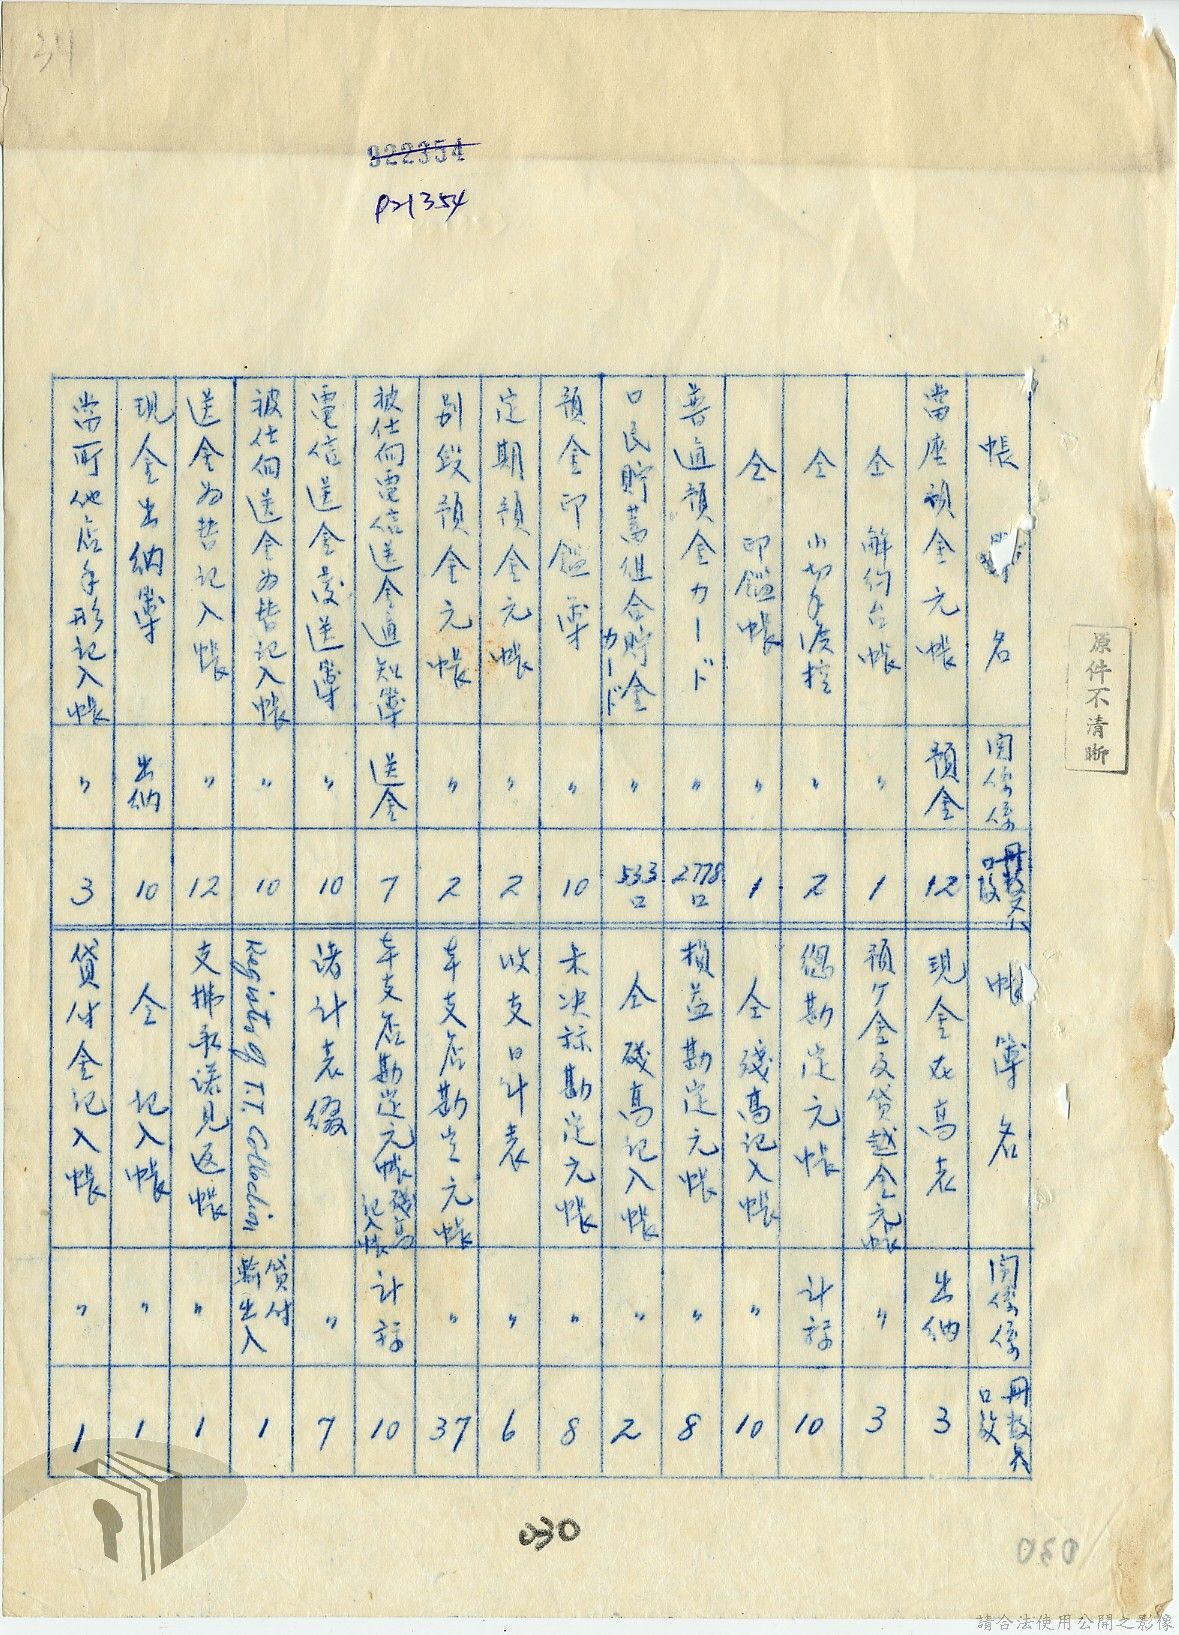 922354
P21354
原件不清晰
帳 名
関係係
冊数又ハ口数
當座預金元帳
預金
12
仝 解約台帳
〃
1
仝 小切手渡控
〃
2
仝 印鑑帳
〃
1
普通預金カード
〃
2778口
口民貯蓄組合貯金カード
〃
533口
預金印鑑簿
〃
10
定期預金元帳
〃
2
別段預金元帳
〃
2
被仕向電信送金通知簿
送金
7
電信送金發送簿
〃
10
被仕向送金為替記入帳
〃
10
送金為替記入帳
〃
12
現金出納簿
出納
10
當所他店手形記入帳
〃
3
帳簿名
関係係
冊数又ハ口数
現金在高表
出納
3
預ケ金及貸越金元帳
〃
3
総勘定元帳
計算
10
仝 残高記入帳
〃
10
損益勘定元帳
〃
8
仝 残高記入帳
〃
2
未決算勘定元帳
〃
8
收支日計表
〃
6
本支店勘定元帳
〃
37
本支店勘定元帳残高記入帳
計算
10
諸計表綴
〃
7
Registry of T.T. Collection
貸付 輸出入
1
支拂承諾見返帳
〃
1
仝 記入帳
〃
1
貸付金記入帳
〃
1
030
請合法使用公開之影像